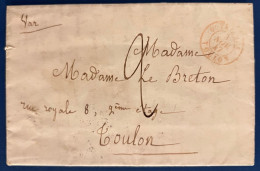 Var
Madame
2
Madame Le Breton
rue royale 8, 2ème étage
Toulon